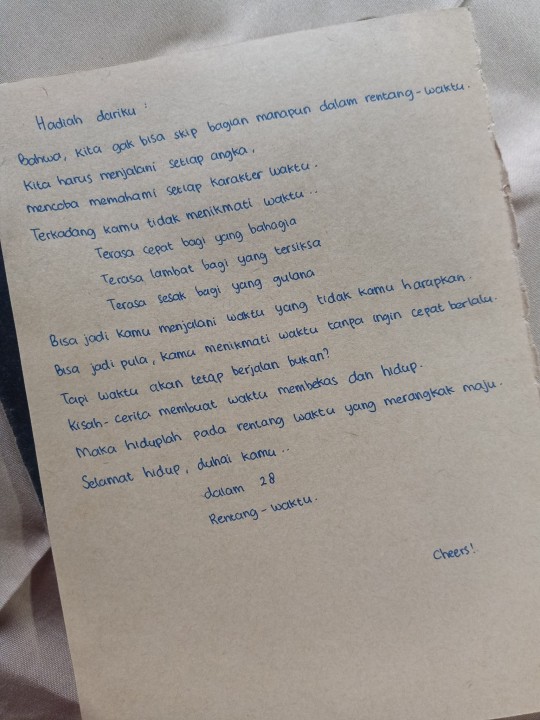 Hadiah dariku :
Bahwa, kita gak bisa skip bagian manapun dalam rentang-waktu.
Kita harus menjalani setiap angka,
mencoba memahami setiap karakter waktu.
Terkadang kamu tidak menikmati waktu..
Terasa cepat bagi yang bahagia
Terasa lambat bagi yang tersiksa
Terasa sesak bagi yang gulana
Bisa jadi kamu menjalani waktu yang tidak kamu harapkan.
Bisa jadi pula, kamu menikmati waktu tanpa ingin cepat berlalu.
Tapi waktu akan tetap berjalan bukan?
Kisah-cerita membuat waktu membekas dan hidup.
Maka hiduplah pada rentang waktu yang merangkak maju.
Selamat hidup, duhai kamu..
dalam 28
Rentang-waktu.
Cheers!